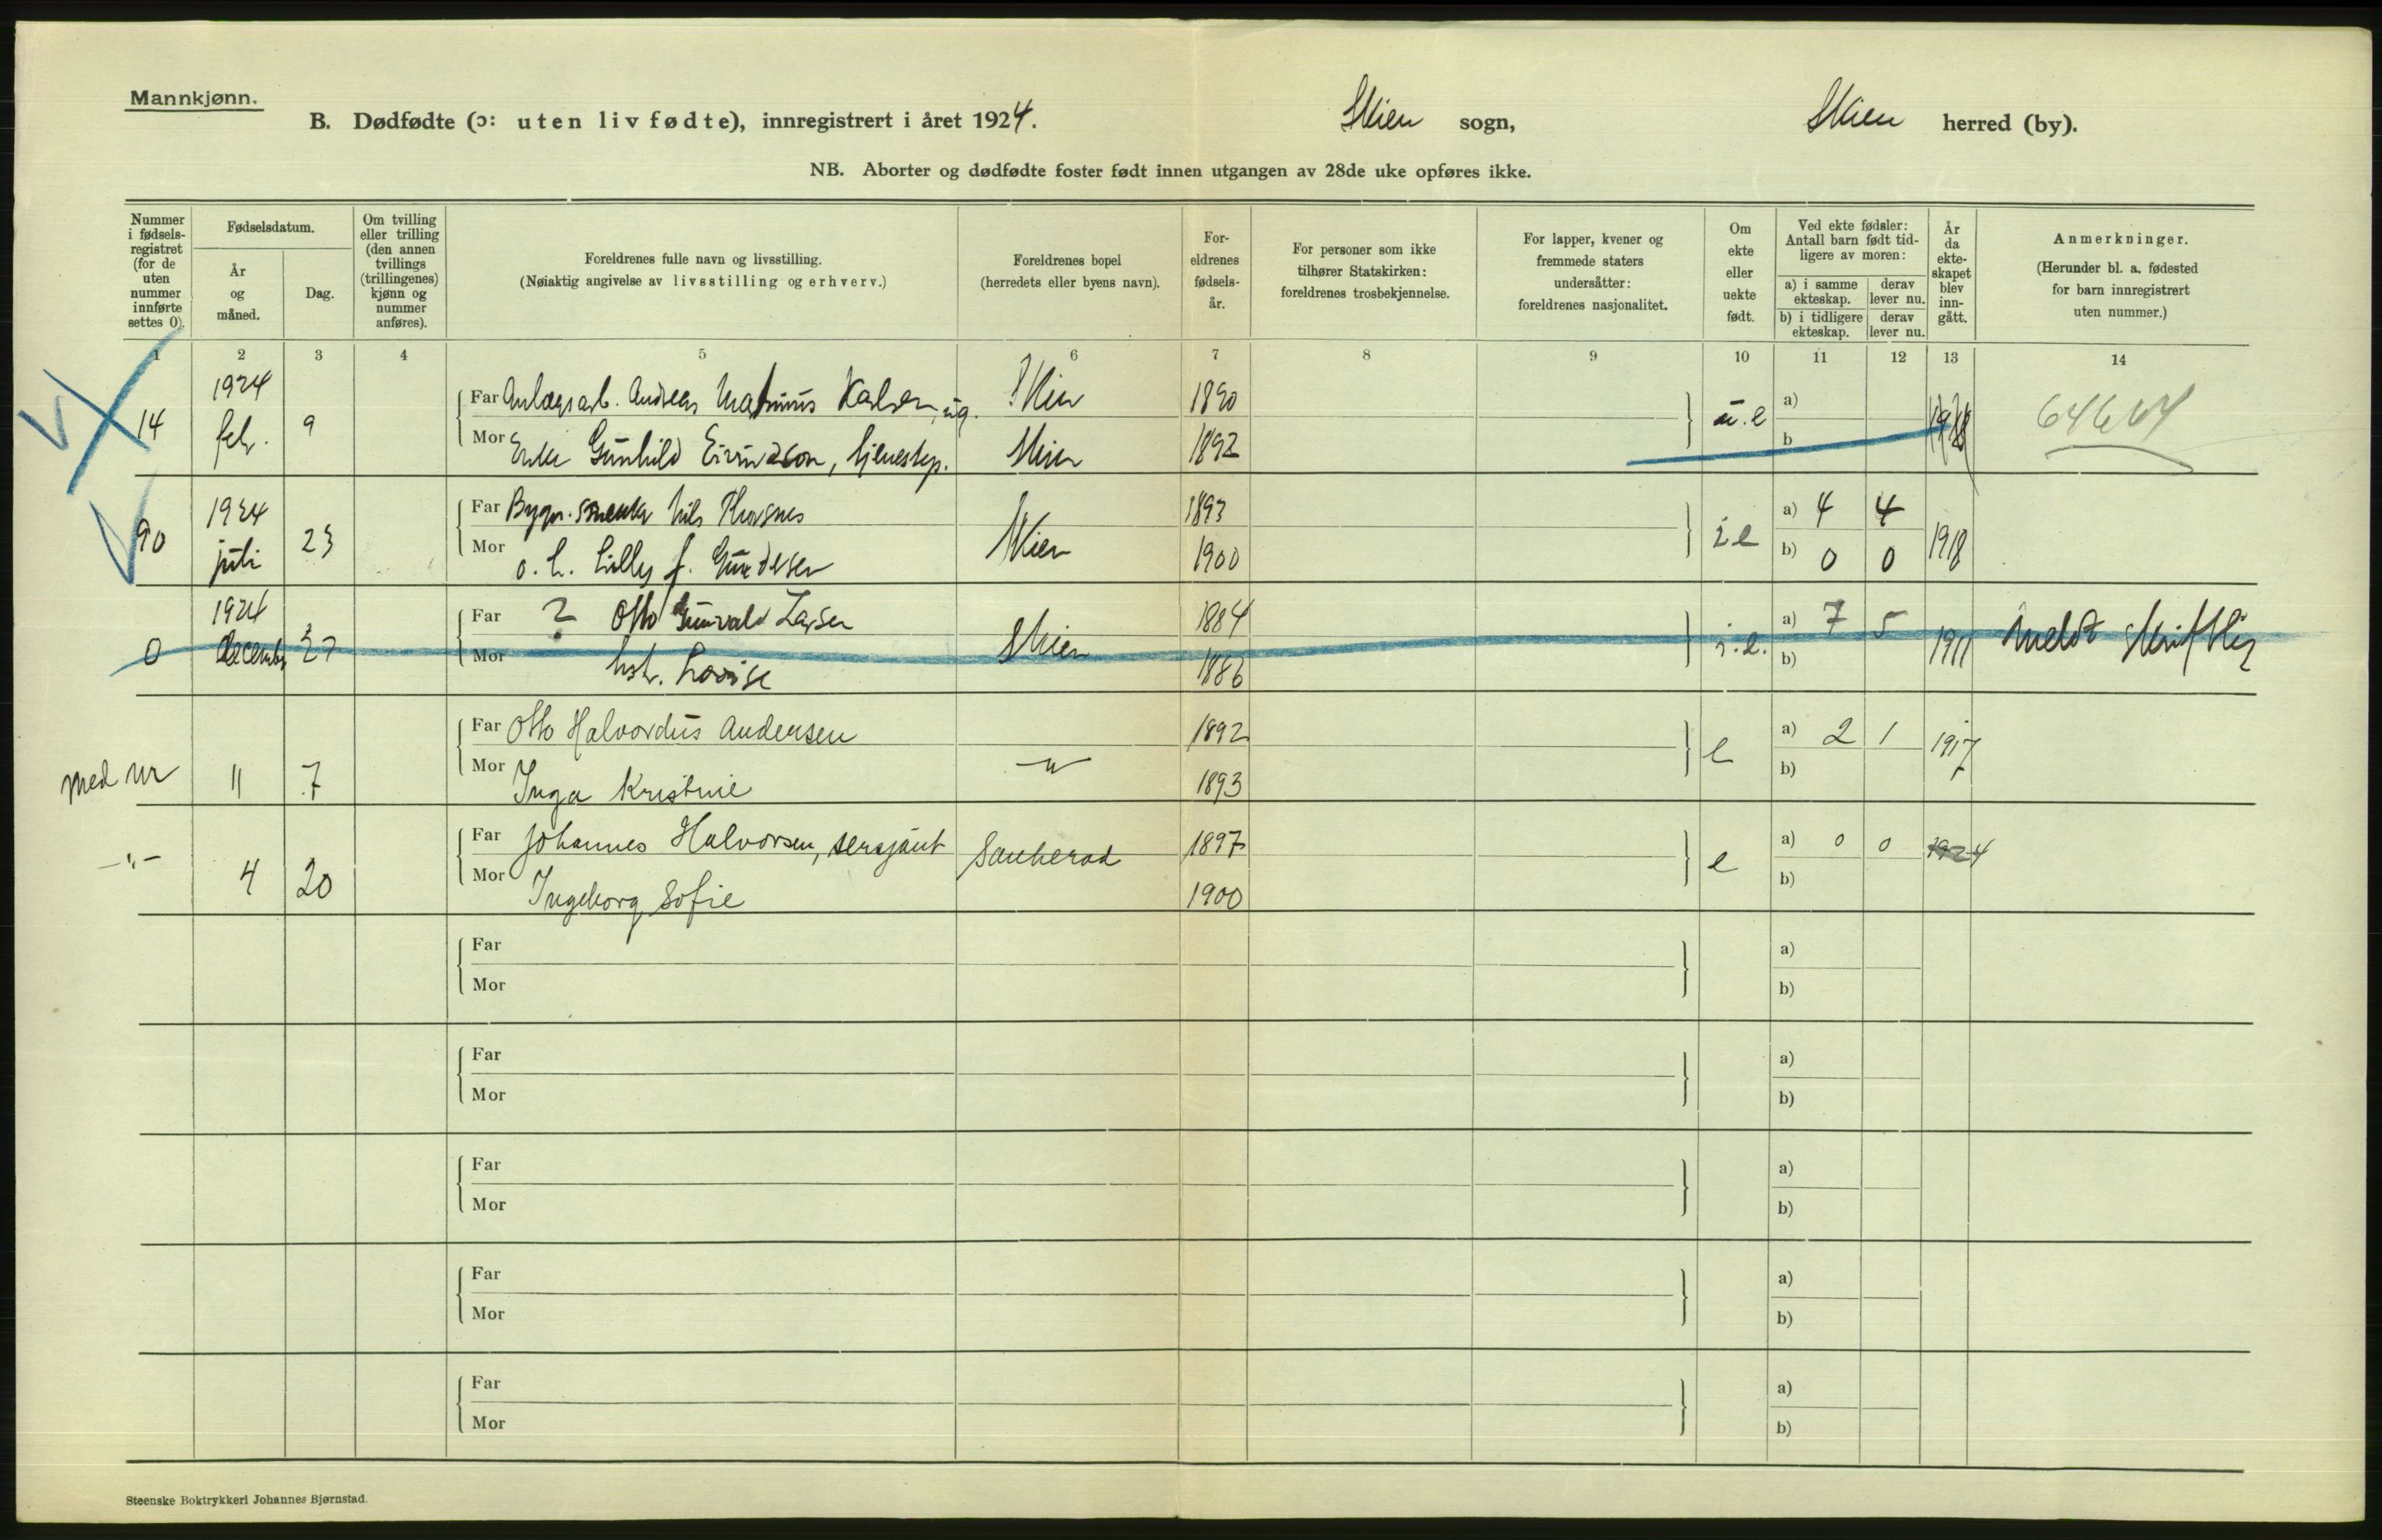 Mannkjønn.
B. Dødfødte (ɔ: uten liv fødte), innregistrert i året 1924.
Skien sogn,
Skien herred (by).
NB. Aborter og dødfødte foster født innen utgangen av 28de uke opføres ikke.
Nummer i fødselsregistret (for de uten nummer innførte settes 0).
Fødselsdatum.
År og måned.
Dag.
Om tvilling eller trilling (den annen tvillings (trillingenes) kjønn og nummer anføres).
Foreldrenes fulle navn og livsstilling.
(Nøiaktig angivelse av livsstilling og erhverv.)
Foreldrenes bopel
(herredets eller byens navn).
Foreldrenes fødselsår.
For personer som ikke tilhører Statskirken: foreldrenes trosbekjennelse.
For lapper, kvener og fremmede staters undersåtter: foreldrenes nasjonalitet.
Om ekte eller uekte født.
Ved ekte fødsler: Antall barn født tidligere av moren:
a) i samme ekteskap.
derav lever nu.
b) i tidligere ekteskap.
derav lever nu.
År da ekteskapet blev inngått.
Anmerkninger.
(Herunder bl. a. fødested for barn innregistrert uten nummer.)
1 2 3 4 5 6 7 8 9 10 11 12 13 14
14 1924 febr. 9
Far Anlægsarb. Andreas Karlsen, ug. Skien 1890
u.e a)
Mor Enke Gunhild Eivindson, tjenestep. Skien 1892
b
64604
90 1924 juli 23
Far Bygn.snekker Nils Skien 1893
i e a) 4 4 1918
Mor o. h. Lilly f. Gundesen 1900
b) 0 0
0 1924 december 27
Far ? Otto Gunvald Larsen Skien 1884
i.e. a) 7 5 1911 Meldt skriftlig
Mor hstr. Lovise 1886
b)
Med nr 11 7
Far Otto Halvordus Andersen -"- 1892
e a) 2 1 1917
Mor Inga Kristine 1893
b)
-"- 4 20
Far Johannes Halvorsen, sersjant Sauherad 1897
e a) 0 0 1924
Mor Ingeborg Sofie 1900
b)
Far a)
Mor b)
Far a)
Mor b)
Far a)
Mor b)
Far a)
Mor b)
Far a)
Mor b)
Steenske Boktrykkeri Johannes Bjørnstad.